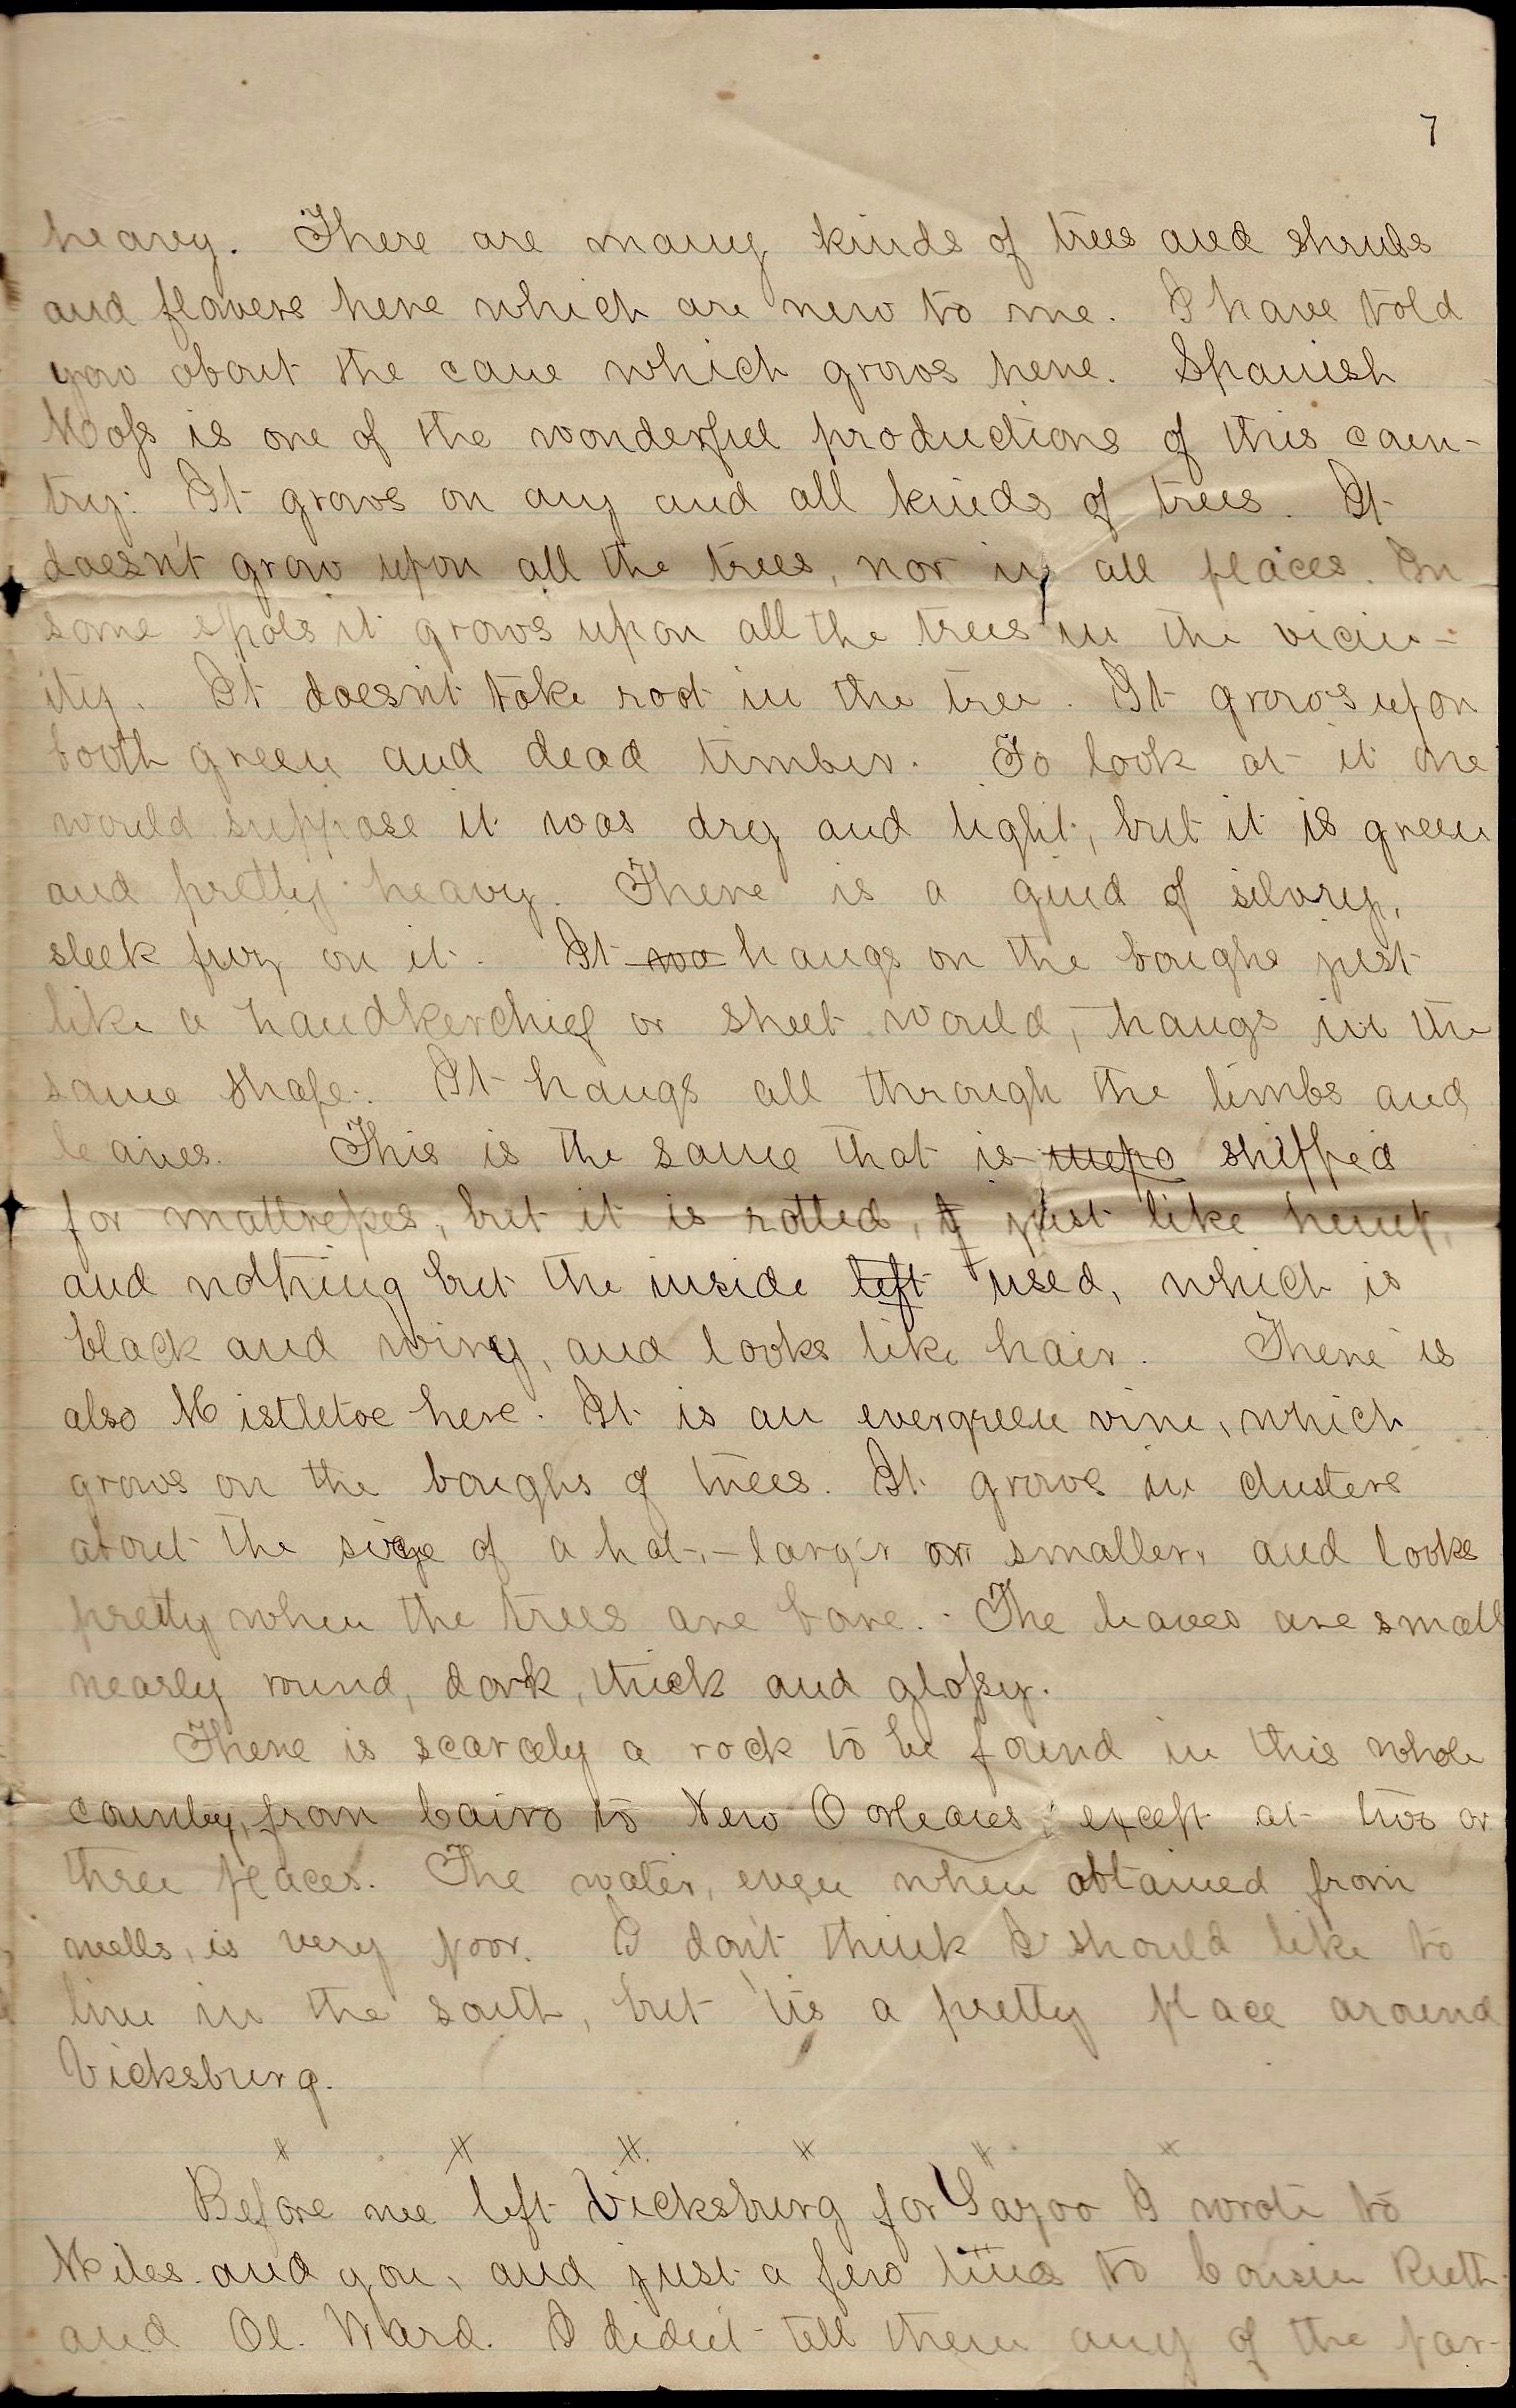 7
heavy. There are many kinds of trees and shrubs
and flowers here which are new to me. I have told
you about the cane which grows here. Spanish
Moss is one of the wonderful productions of this coun-
try. It grows on any and all kinds of trees. It
doesn't grow upon all the trees, nor in all places. In
some spots it grows upon all the trees in the vicin-
ity. It doesn't take root in the tree. It grows upon
both green and dead timber. To look at it one
would suppose it was dry and light, but it is green
and pretty heavy. There is a kind of silvery,
sleek fuz on it. It hangs on the boughs just
like a handkerchief or sheet would, hangs in the
same shape. It hangs all through the limbs and
leaves. This is the same that is shipped
for mattresses, but it is rotted, just like hemp,
and nothing but the inside left used, which is
black and wiry, and looks like hair. There is
also Mistletoe here. It is an evergreen vine, which
grows on the boughs of trees. It grows in clusters
about the size of a hat,—larger or smaller, and looks
pretty when the trees are bare. The leaves are small
nearly round, dark, thick and glossy.
There is scarcely a rock to be found in this whole
country, from Cairo to New Orleans, except at two or
three places. The water, even when obtained from
wells, is very poor. I don't think I should like to
live in the south, but 'tis a pretty place around
Vicksburg.
x x x x x x
Before we left Vicksburg for Yazoo I wrote to
Miles and you, and just a few lines to Cousin Ruth
and Ol. Ward. I didn't tell them any of the par-